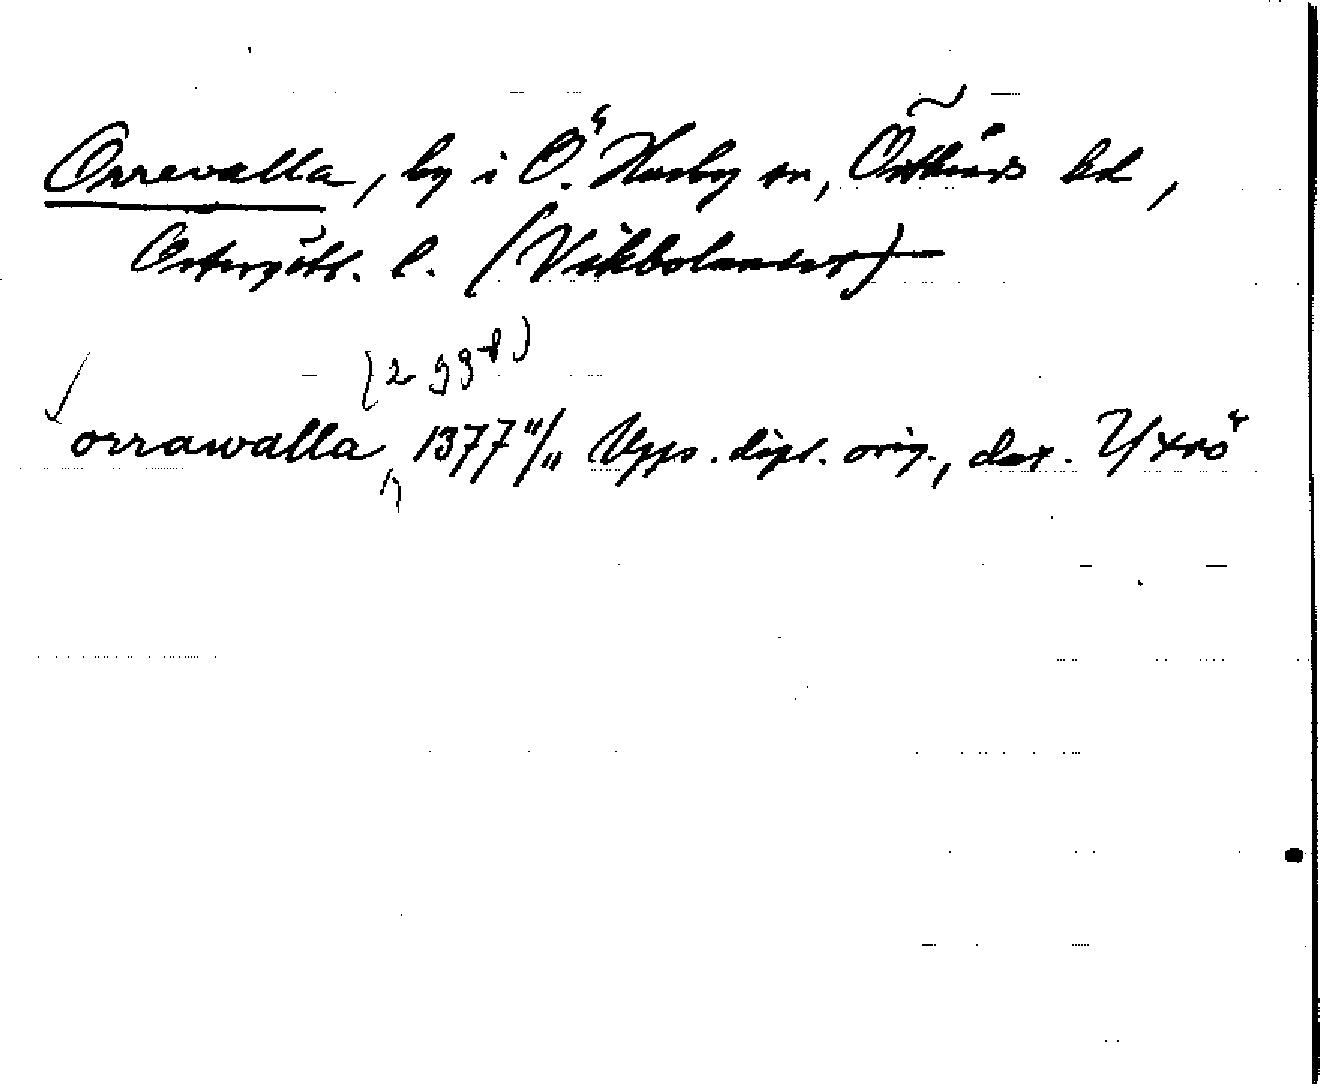 Orrevalla, by i Ö. Husby sn, Östkinds hd,
Östergötl. l. (Vikbolandet)
(2 ggr)
orrawalla, 1377 11/11 Upps. dipl. orig., dat. Yxnö